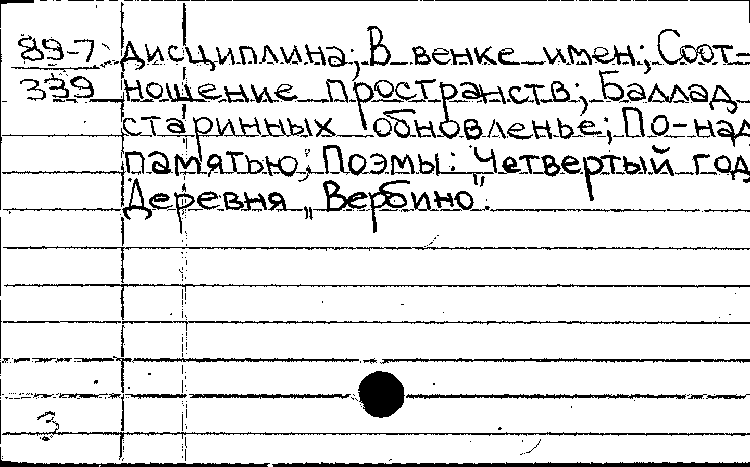 89-7 дисциплина; В венке имен; Соот-
339 ношение пространств; Баллад
старинных обновленье; По-над
памятью; Поэмы: Четвертый год
Деревня „Вербино".
3